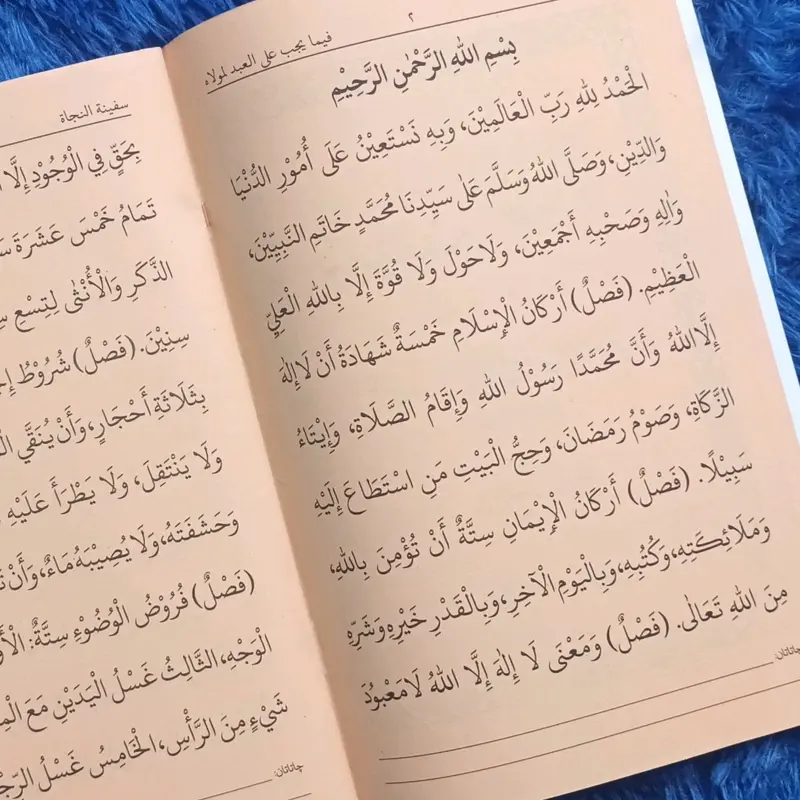 ٢
فيما يجب على العبد لمولاه
بِسْمِ اللهِ الرَّحْمٰنِ الرَّحِيْمِ
الْحَمْدُ لِلهِ رَبِّ الْعَالَمِيْنَ، وَبِهِ نَسْتَعِيْنُ عَلَى أُمُوْرِ الدُّنْيَا
وَالدِّيْنِ، وَصَلَّى اللهُ وَسَلَّمَ عَلٰى سَيِّدِنَا مُحَمَّدٍ خَاتِمِ النَّبِيِّيْنَ،
وَاٰلِهِ وَصَحْبِهِ أَجْمَعِيْنَ، وَلَا حَوْلَ وَلَا قُوَّةَ إِلَّا بِاللهِ الْعَلِيِّ
الْعَظِيْمِ. (فَصْلٌ) أَرْكَانُ الْإِسْلَامِ خَمْسَةٌ شَهَادَةُ أَنْ لَا إِلٰهَ
إِلَّا اللهُ وَأَنَّ مُحَمَّدًا رَسُوْلُ اللهِ وَإِقَامُ الصَّلَاةِ، وَإِيْتَاءُ
الزَّكَاةِ، وَصَوْمُ رَمَضَانَ، وَحِجُّ الْبَيْتِ مَنِ اسْتَطَاعَ إِلَيْهِ
سَبِيْلًا. (فَصْلٌ) أَرْكَانُ الْإِيْمَانِ سِتَّةٌ أَنْ تُؤْمِنَ بِاللهِ،
وَمَلَائِكَتِهِ، وَكُتُبِهِ، وَبِالْيَوْمِ الْاٰخِرِ، وَبِالْقَدْرِ خَيْرِهِ وَشَرِّهِ
مِنَ اللهِ تَعَالٰى. (فَصْلٌ) وَمَعْنَى لَا إِلٰهَ إِلَّا اللهُ لَا مَعْبُوْدَ
چاتاتان:
سفينة النجاة
بِحَقٍّ فِي الْوُجُوْدِ إِلَّا
تَمَامُ خَمْسَ عَشَرَةَ
الذَّكَرِ وَالْأُنْثٰى لِتِسْعِ
سِنِيْنَ. (فَصْلٌ) شُرُوْطُ
بِثَلَاثَةِ أَحْجَارٍ، وَأَنْ يُنَقِّيَ
وَلَا يَنْتَقِلَ، وَلَا يَطْرَأَ عَلَيْهِ
وَحَشَفَتَهُ، وَلَا يُصِيْبَهُ مَاءٌ، وَأَنْ
(فَصْلٌ) فُرُوْضُ الْوُضُوْءِ سِتَّةٌ:
الْوَجْهِ، الثَّالِثُ غَسْلُ الْيَدَيْنِ مَعَ
شَيْءٍ مِنَ الرَّأْسِ، الْخَامِسُ غَسْلُ
چاتاتان: